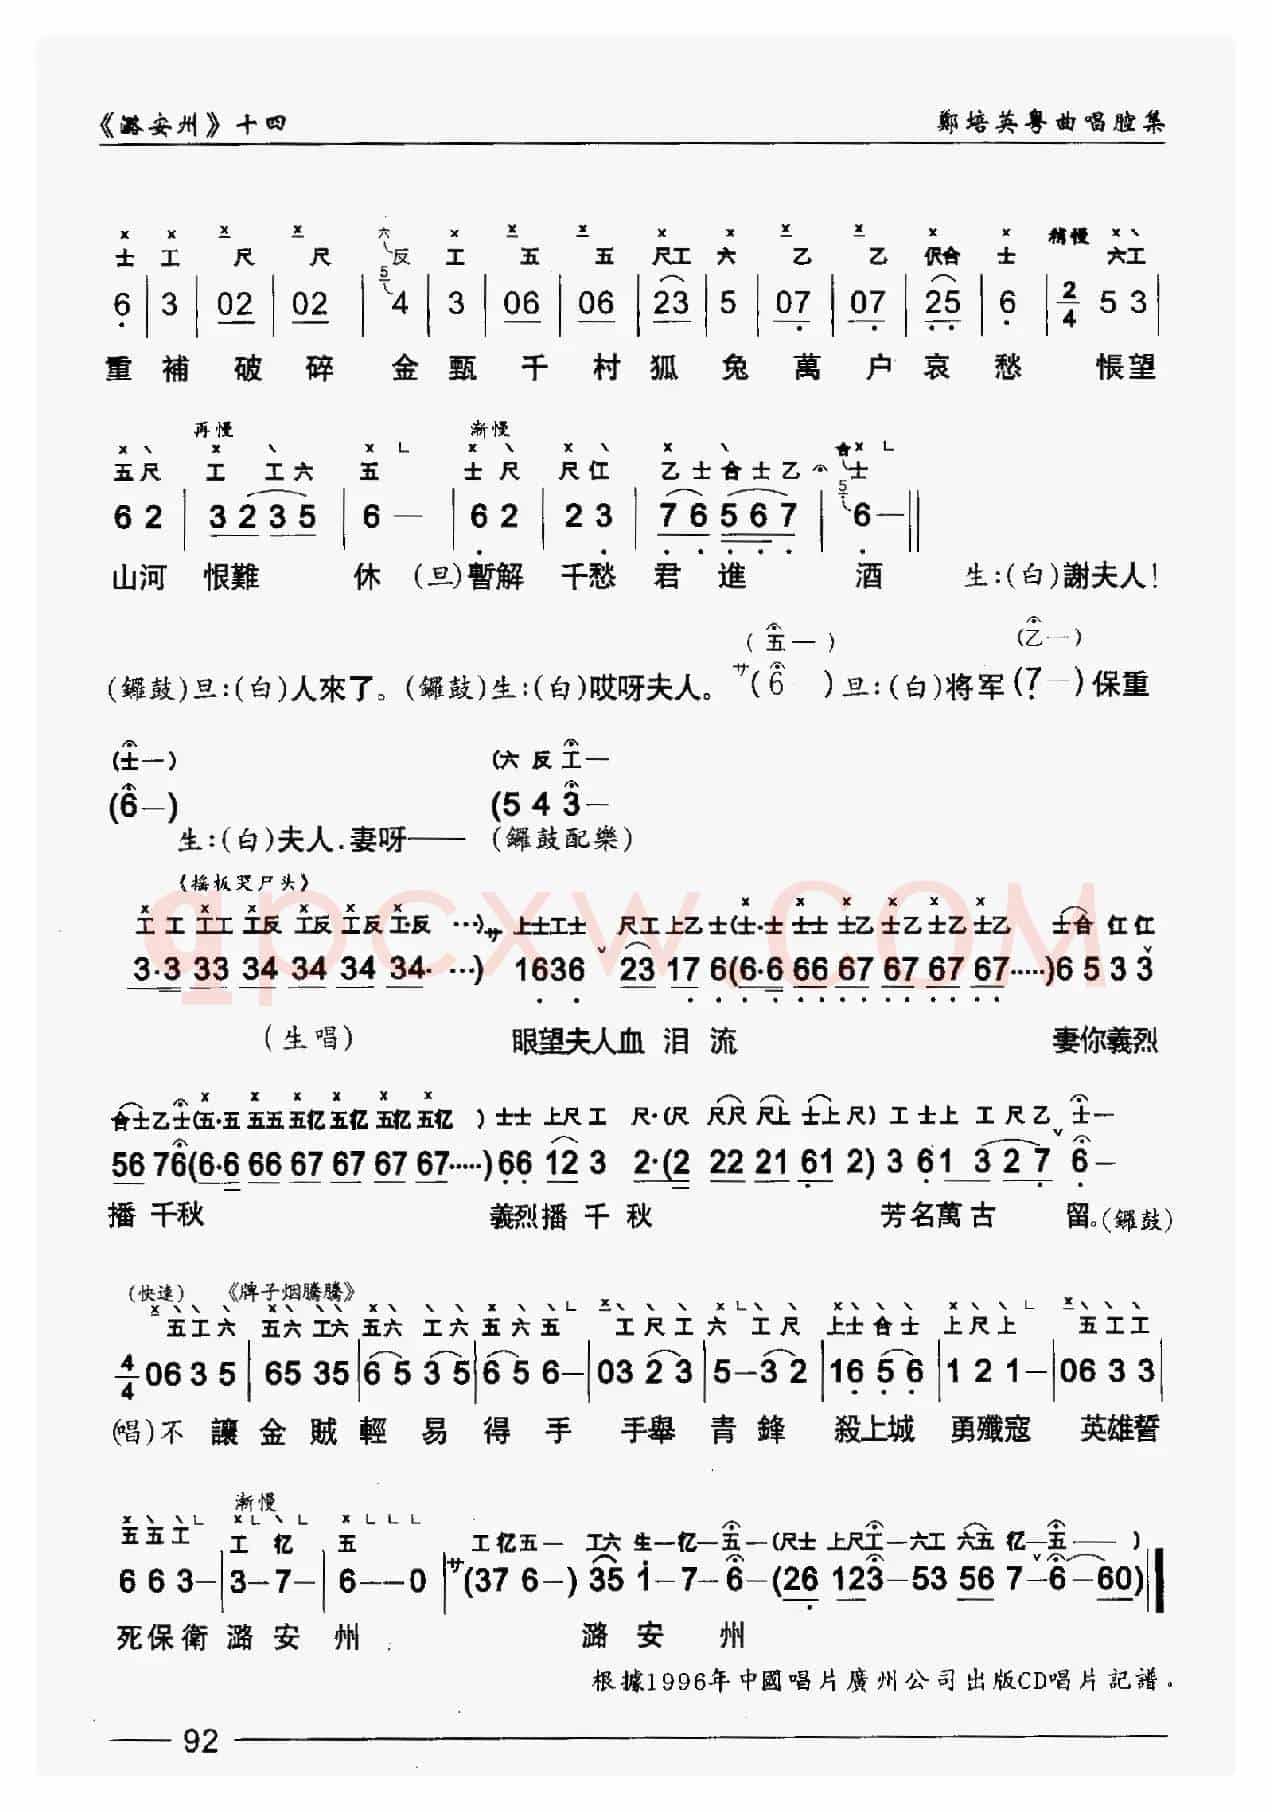 《潞安州》十四
鄭培英粵曲唱腔集
士 工 尺 尺 六 反 工 五 五 尺工 六 乙 乙 伬合 士 稍慢 六工
6 | 3 | 02 | 02 | 5 4 | 3 | 06 | 06 | 23 | 5 | 07 | 07 | 25 | 6 | 2/4 5 3 |
重 補 破 碎 金 甄 千 村 狐 兔 萬 户 哀 愁 悵望
再慢 漸慢
五尺 工 工六 五 士尺 尺仜 乙士合士乙 合 士
6 2 | 3 2 3 5 | 6 — | 6 2 | 2 3 | 7 6 5 6 7 | 5 6 — ||
山河 恨難 休 (旦)暫解 千愁 君 進 酒 生:(白)謝夫人!
(五一) (乙一)
(鑼鼓)旦:(白)人來了。(鑼鼓)生:(白)哎呀夫人。サ(6 )旦:(白)将军(7—)保重
(士一) (六反工一
(6—) (5 4 3—
生:(白)夫人.妻呀—— (鑼鼓配樂)
《搖板哭尸头》
工工 工工 工反 工反 工反 工·反 ···)サ上士工士 尺工上乙士(士·士 士士 士乙 士乙 士乙 士乙 士合仜仜
3·3 33 34 34 34 34· ···) 1636 23 17 6(6·6 66 67 67 67 67·····)6 5 3 3
(生唱) 眼望夫人血 泪 流 妻你義烈
合士乙士(五·五 五五 五亿 五亿 五亿 五亿 )士士 上尺工 尺·(尺 尺尺 尺上 士上尺)工 士上 工尺乙 士一
56 76(6·6 66 67 67 67 67·····)66 12 3 2·(2 22 21 61 2) 3 61 3 2 7 6—
播 千秋 義烈播 千 秋 芳名萬古 留。(鑼鼓)
(快速) 《牌子烟騰騰》
五工六 五六 工六 五六 工六 五六五 工尺工 六 工尺 上士合士 上尺上 五工工
4/4 06 3 5 | 65 35 | 6 5 3 5 | 6 5 6— | 03 2 3 | 5—3 2 | 16 5 6 | 1 2 1— | 06 3 3 |
(唱)不 讓 金 賊 輕 易 得 手 手舉 青 鋒 殺上城 勇殲寇 英雄誓
漸慢
五五工 工 亿 五 工亿五一 工六 生一亿一五一(尺士 上尺工一六工 六五 亿一五—— )
6 6 3— | 3—7— | 6——0 | サ(37 6—) 35 1—7—6—(26 123—53 56 7—6—60)
死保衛 潞 安 州 潞 安 州
根據1996年中國唱片廣州公司出版CD唱片記譜。
92
qpcxw.COM